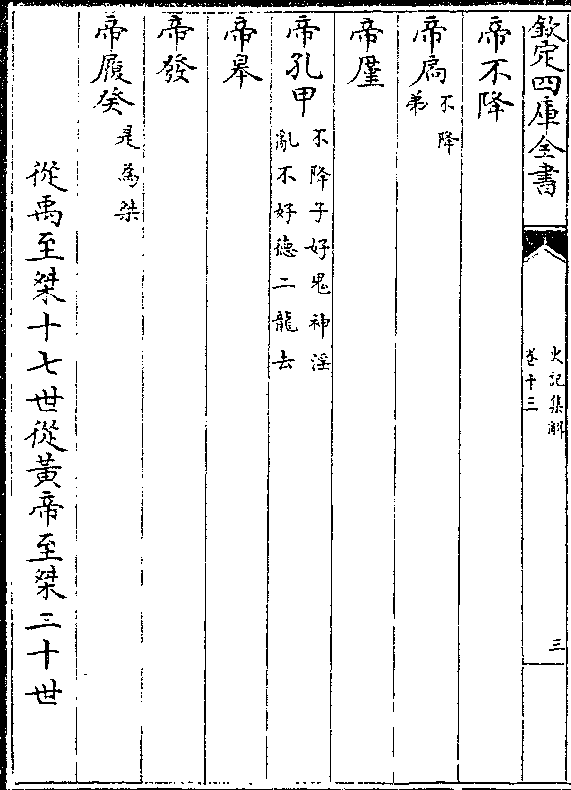 欽定四庫全書
史記集解
卷十三
三
帝不降
帝扃
不降
弟
帝廑
帝孔甲
不降子好鬼神淫
亂不好德二龍去
帝皋
帝發
帝履癸
是為桀
從禹至桀十七世從黃帝至桀三十世